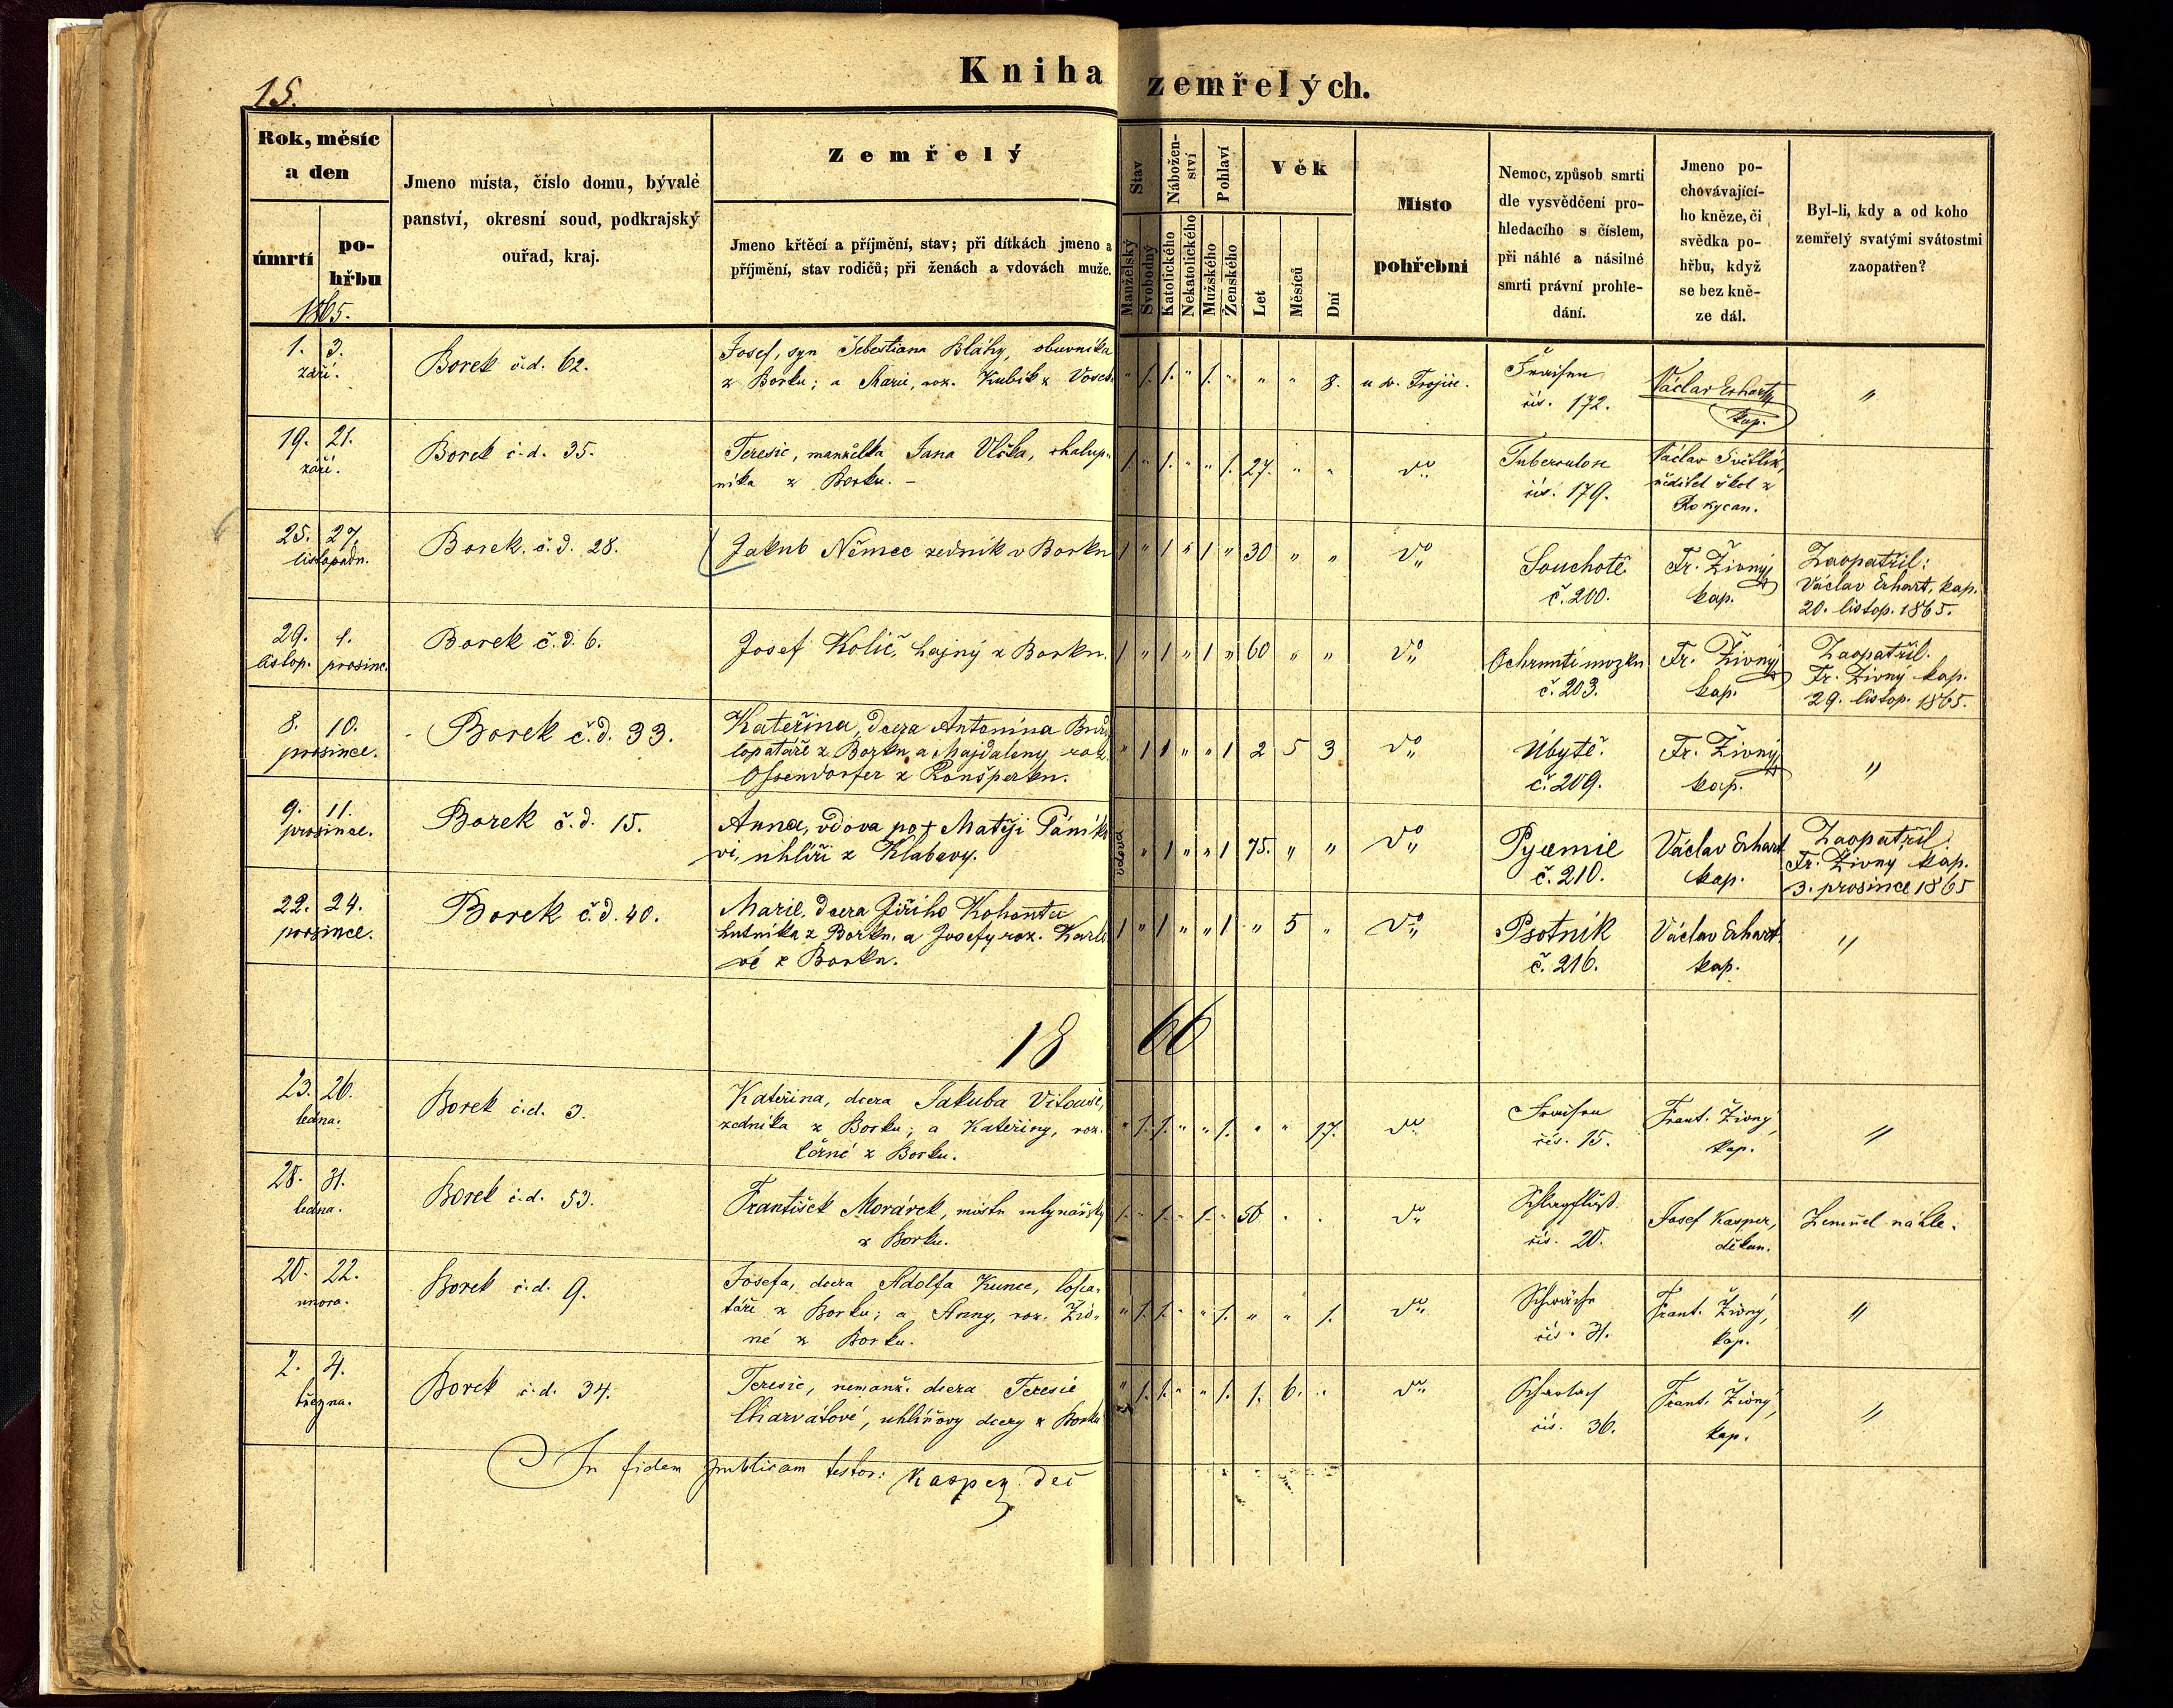 15.
Kniha zemřelých.
Rok, měsíc a den
úmrtí
pohřbu
1865.
Jmeno místa, číslo domu, bývalé
panství, okresní soud, podkrajský
ouřad, kraj.
Zemřelý
Jmeno křtěcí a příjmění, stav; při dítkách jmeno a
příjmění, stav rodičů; při ženách a vdovách muže.
Stav
Manželský
Svobodný
Náboženství
Katolického
Nekatolického
Pohlaví
Mužského
Ženského
Věk
Let
Měsíců
Dní
Místo
pohřební
Nemoc, způsob smrti
dle vysvědčení pro-
hledacího s číslem,
při náhlé a násilné
smrti právní prohle-
dání.
Jmeno po-
chovávající-
ho kněze, či
svědka po-
hřbu, když
se bez kně-
ze dál.
Byl-li, kdy a od koho
zemřelý svatými svátostmi
zaopatřen?
1. 3.
září.
Borek č.d. 62.
Josef, syn Šebestiana Bláhy, obuvníka
z Borku; a Marie, roz. Kubík z
" 1. 1. " 1. " " " 8.
u sv. Trojice.
Fraisen
čís. 172.
Václav Erhart,
kap.
"
19. 21.
září.
Borek č.d. 35.
Teresie, manželka Jana Vlčka, chalup-
níka z Borku. -
1. " 1. " " 1. 27. " "
do
Tuberculose
čís. 179.
Václav Světlík,
ředitel škol z
Rokycan.
25. 27.
listopadu.
Borek. č.d. 28.
Jakub Němec zedník v Borku
1 " 1 " 1 " 30 " "
do
Souchotě
č. 200.
Fr. Živný
kap.
Zaopatřil:
Václav Erhart, kap.
20. listop. 1865.
29. 1.
listop. prosince.
Borek č.d. 6.
Josef Količ, hajný z Borku.
1 " 1 " 1 " 60 " "
do
Ochrnutí mozku
č. 203.
Fr. Živný
kap.
Zaopatřil.
Fr. Živný kap.
29. listop. 1865.
8. 10.
prosince.
Borek č.d. 33.
Kateřina, dcera Antonína
lopatáře z Borku, a Majdaleny roz.
Ossendorfer z Ronšperku.
" 1 1 " " 1 2 5 3
do
Úbytě.
č. 209.
Fr. Živný
kap.
"
9. 11.
prosince.
Borek č.d. 15.
Anna, vdova po † Matěji Páníko
vi, uhlíři z Klabavy.
vdova " 1 " " 1 75. " "
do
Pyæmie
č. 210.
Václav Erhart
kap.
Zaopatřil:
Fr. Živný kap.
3. prosince 1865
22. 24.
prosince.
Borek č.d. 40.
Marie, dcera Jiřího Kohouta
hutníka z Borku, a Josefy roz. Karlo
vé z Borku.
1 " 1 " " 1 " 5 "
do
Psotník
č. 216.
Václav Erhart
kap.
"
1866
23. 26.
ledna.
Borek č.d. 3.
Kateřina, dcera Jakuba Vitouše,
zedníka z Borku; a Kateřiny, roz.
Černé z Borku.
" 1. 1. " " 1. " " 17.
do
Fraisen
čís. 15.
Frant. Živný,
kap.
"
28. 31.
ledna.
Borek č.d. 53.
František Morávek, mistr mlynářský
z Borku.
1. " 1. " 1. " 56 " "
do
Schlagfluß
čís. 20.
Josef Kasper,
děkan.
Zemřel náhle.
20. 22.
února.
Borek č.d. 9.
Josefa, dcera Adolfa Kunce, lopa-
táře z Borku; a Anny, roz.
né z Borku.
" 1. 1. " " 1. " " 1.
do
Schwäche
čís. 31.
Frant. Živný,
kap.
"
2. 4.
března.
Borek č.d. 34.
Teresie, nemanž. dcera Teresie
Charvátové, uhlířovy dcery z Borku
" 1. 1. " " 1. 1. 6. "
do
Scharlach
čís. 36.
Frant. Živný,
kap.
"
In fidem publicam testor: Kasper děk